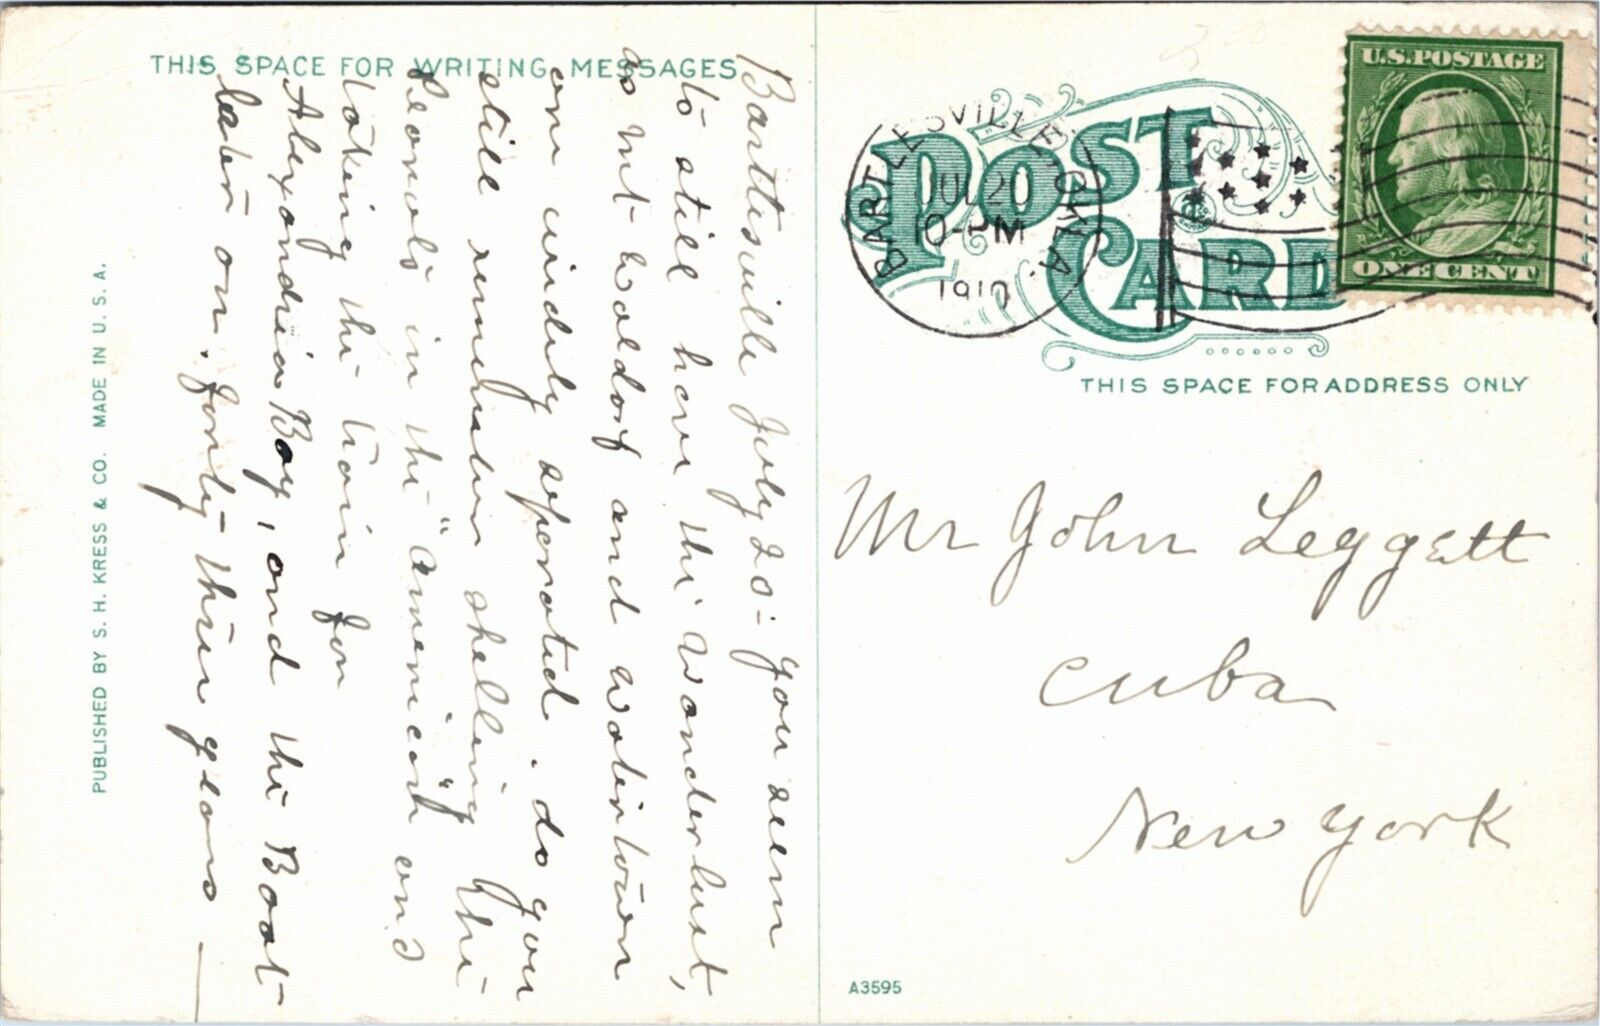 THIS SPACE FOR WRITING MESSAGES
Bartlesville July 20 - you seem
to still have the wanderlust,
as Mt Waldorf and watertown
are widely separated. do you
still remember shelling the
Peanuts in the "American" and
taking the train for
Alexandria Bay, and the Boat
later on. forty-three years —
PUBLISHED BY S. H. KRESS & CO. MADE IN U. S. A.
POST CARD
BARTLESVILLE, OKLA.
JUL 20
0-PM
1910
U.S. POSTAGE
ONE CENT
THIS SPACE FOR ADDRESS ONLY
Mr John Leggett
Cuba
New York
A3595